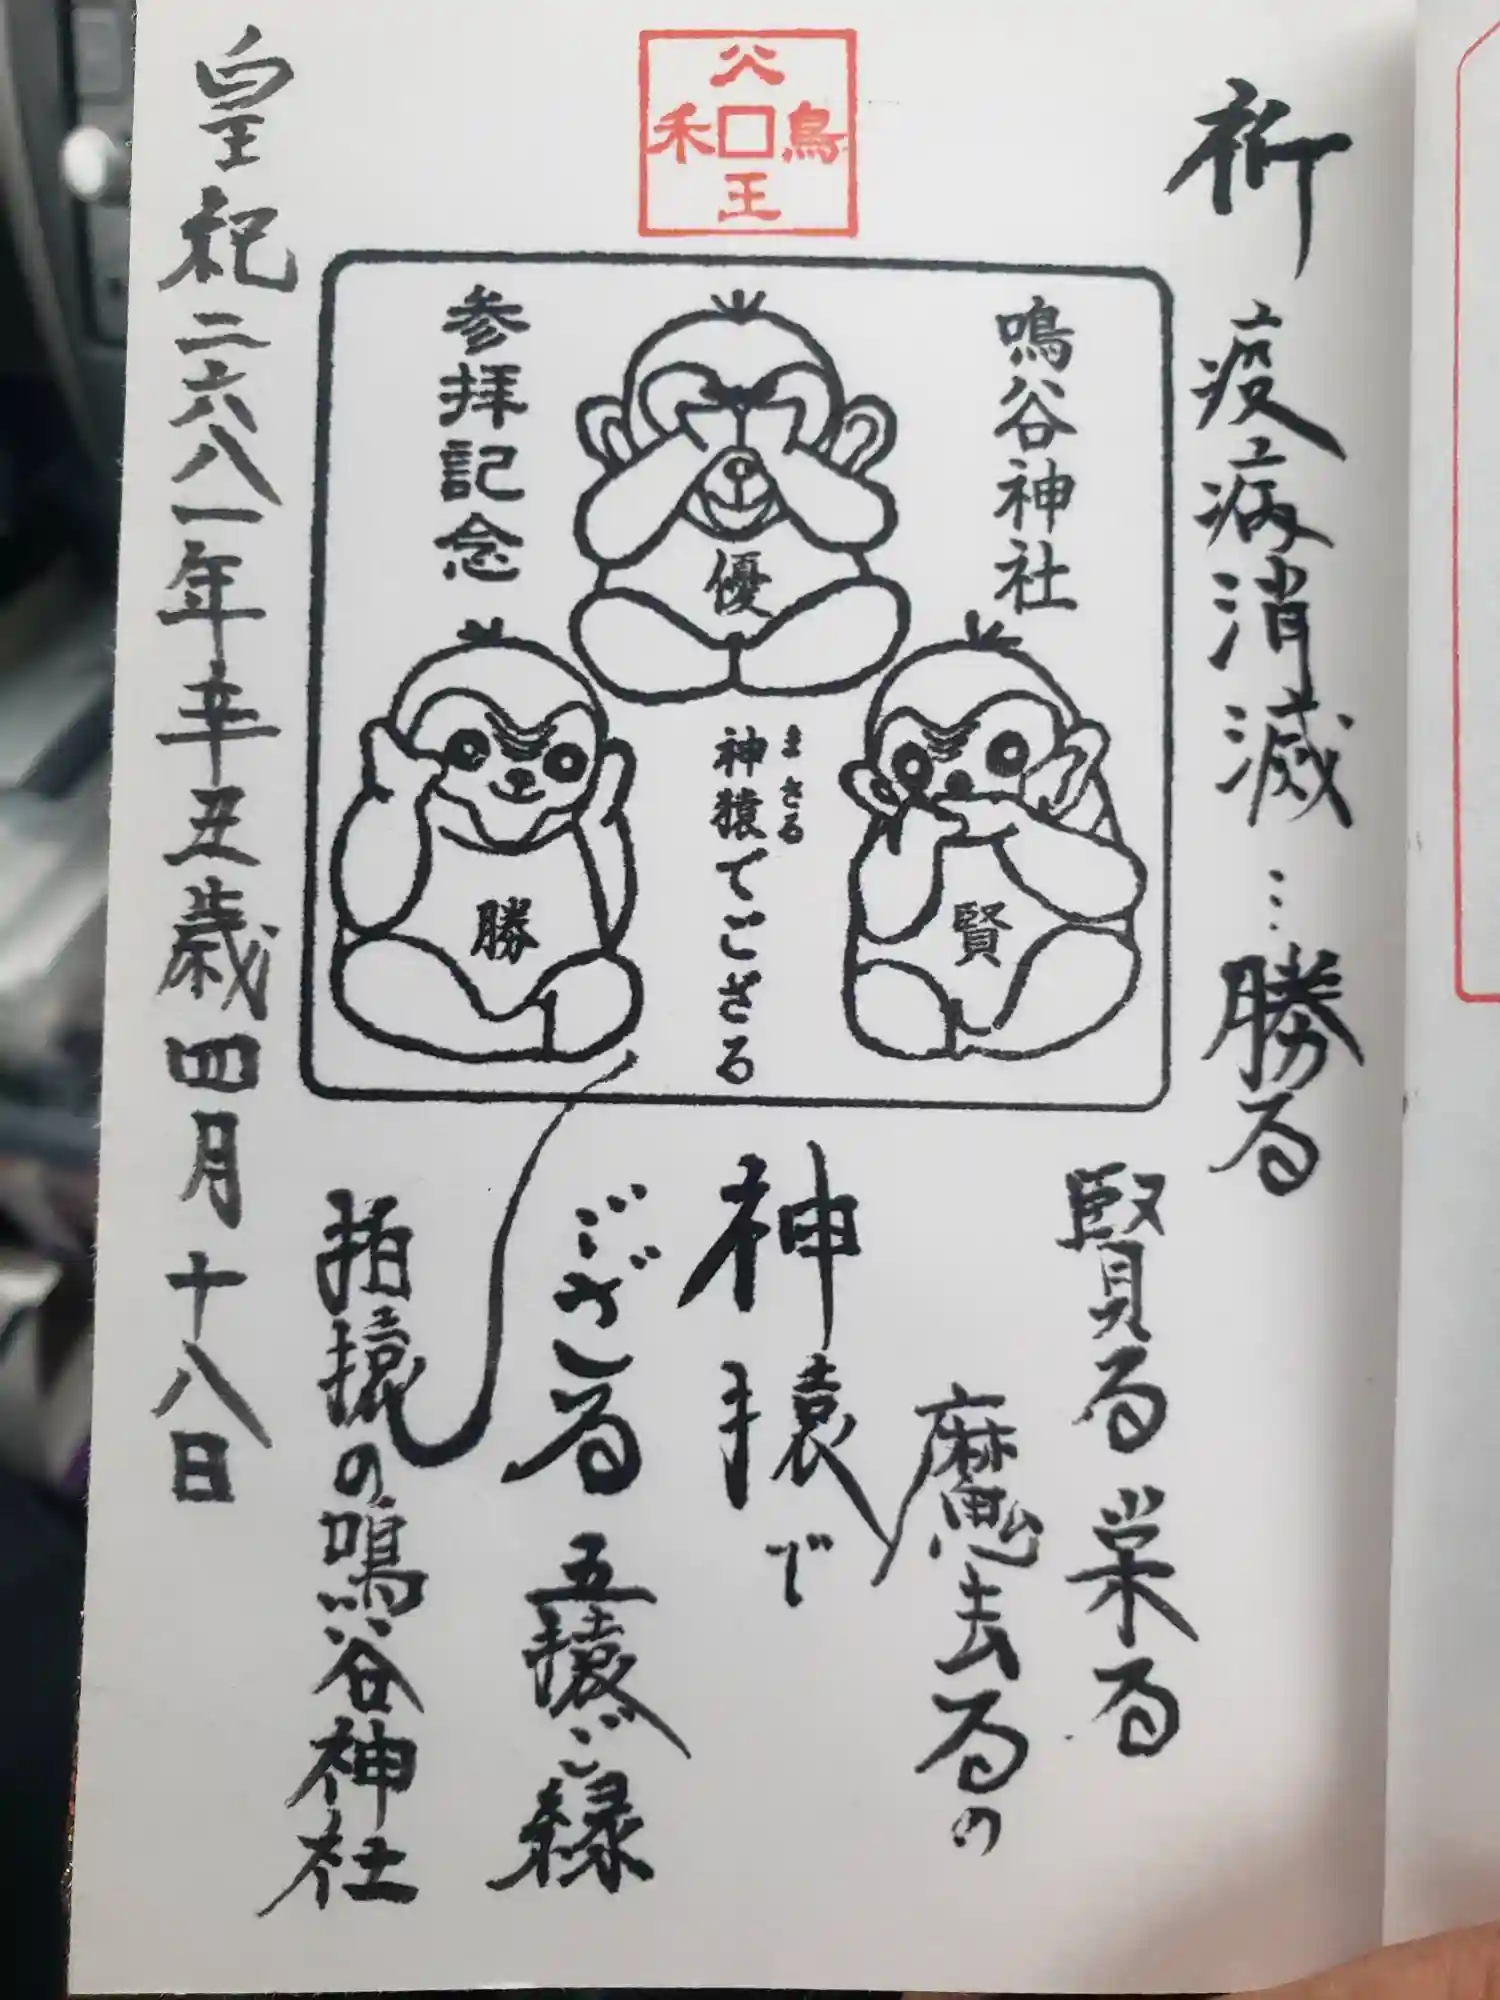 祈 疫病消滅…勝る
賢る栄る
魔去るの
神猿で
ござる 五猿ご縁
招猿の鳴谷神社
皇紀二六八一年辛丑歳四月十八日
公
禾口鳥
王
鳴谷神社
参拝記念
優
勝
賢
まさる
神猿でござる